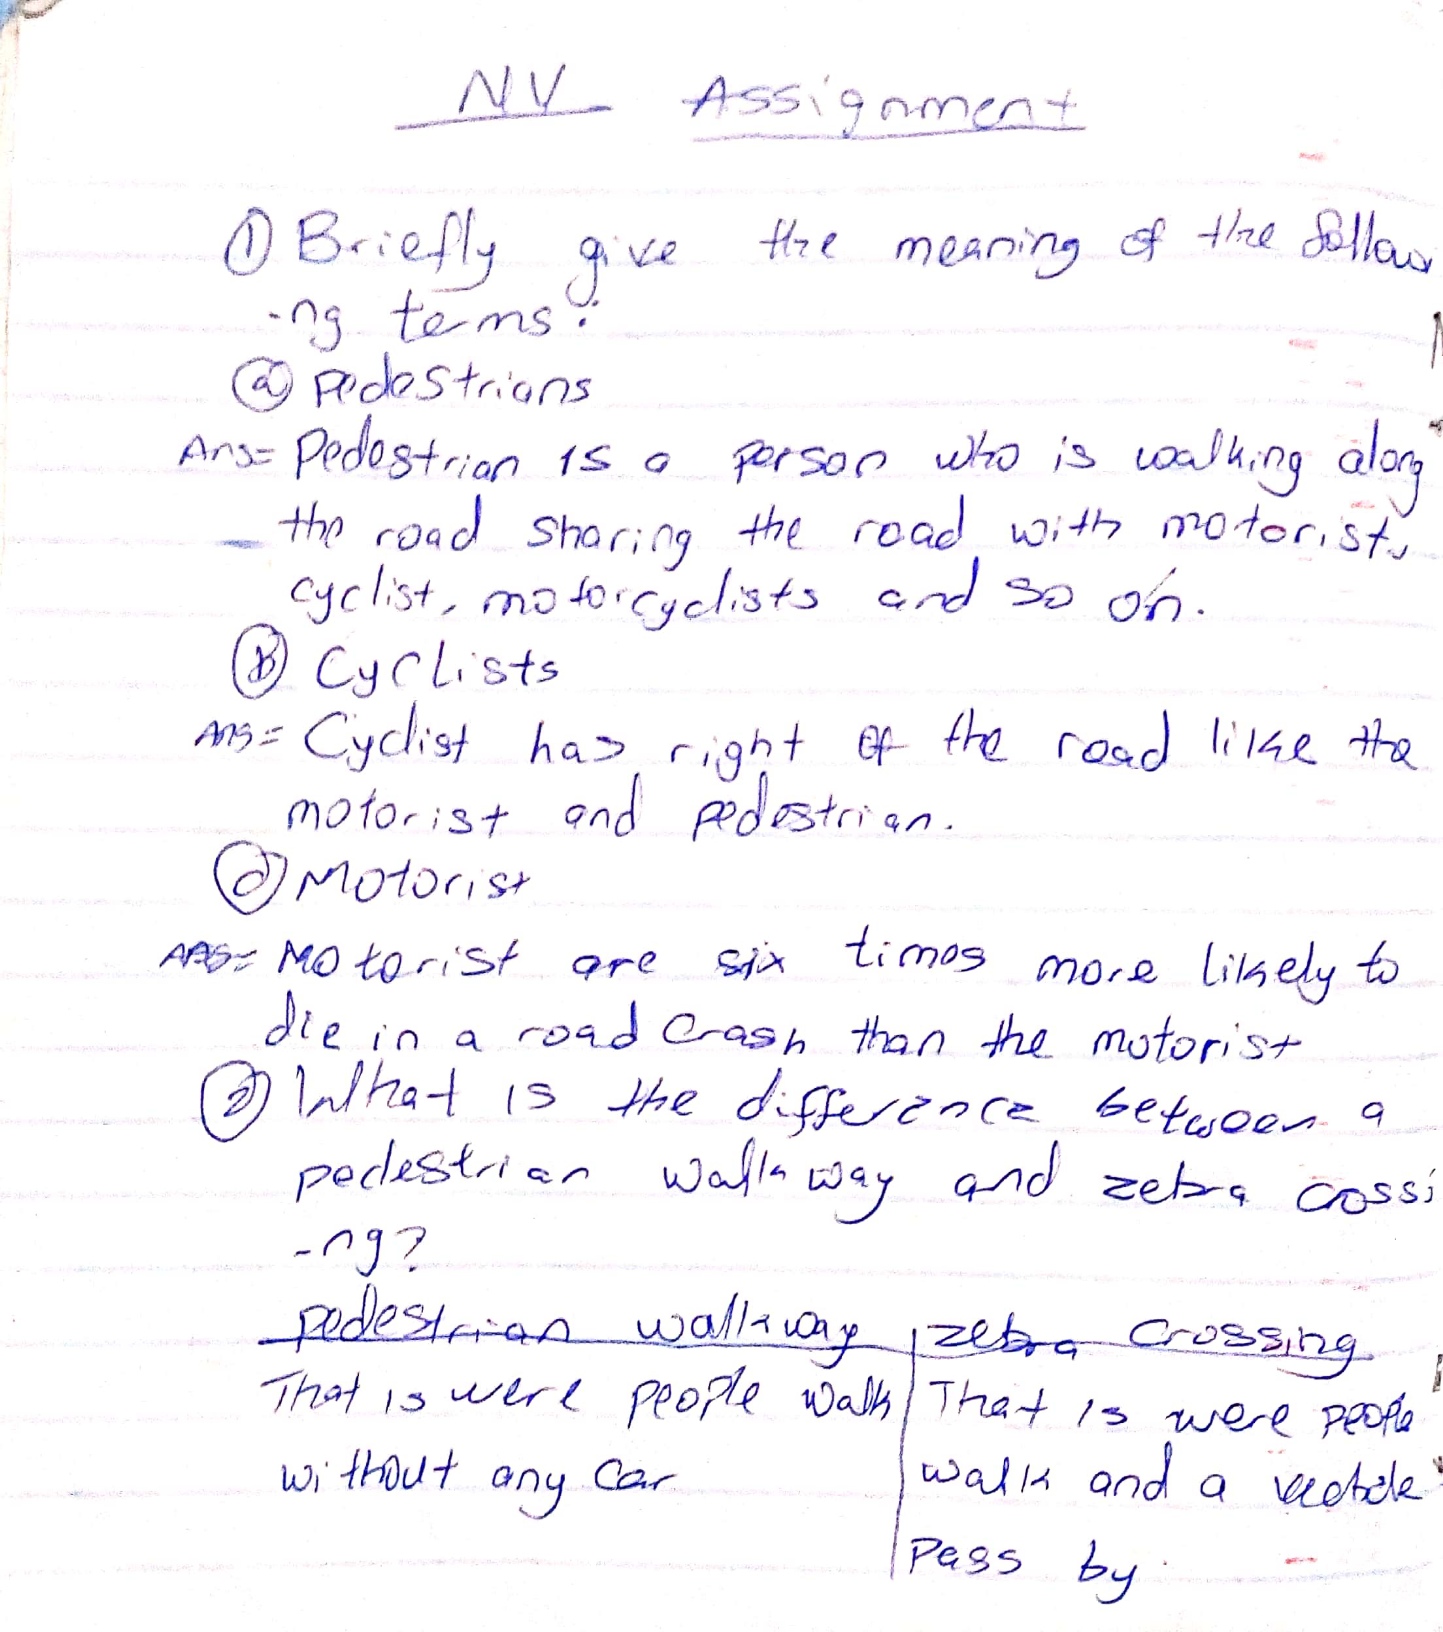 NV Assignment
① Briefly give the meaning of the follow
-ng terms:
ⓐ pedestrians
Ans= Pedestrian is a person who is walking along
the road sharing the road with motorist,
cyclist, motorcyclists and so on.
Ⓑ Cyclists
Ans= Cyclist has right of the road like the
motorist and pedestrian.
ⓒ Motorist
Ans= Motorist are six times more likely to
die in a road Crash than the motorist
② What is the difference between a
pedestrian walkway and zebra crossi
-ng?
pedestrian walkway | zebra Crossing
That is were people walk | That is were people
without any Car | walk and a
Pass by.